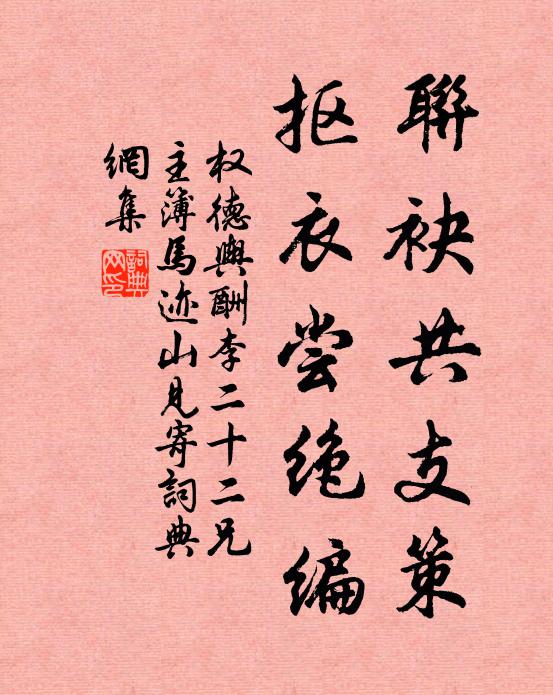 聯袂共支策
抠衣尝绝编
权德與酬李二十二兄
主簿馬迹山見寄詞典
網集
詞典网印